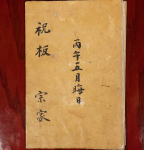 丙午五月晦日
祝板 宗家